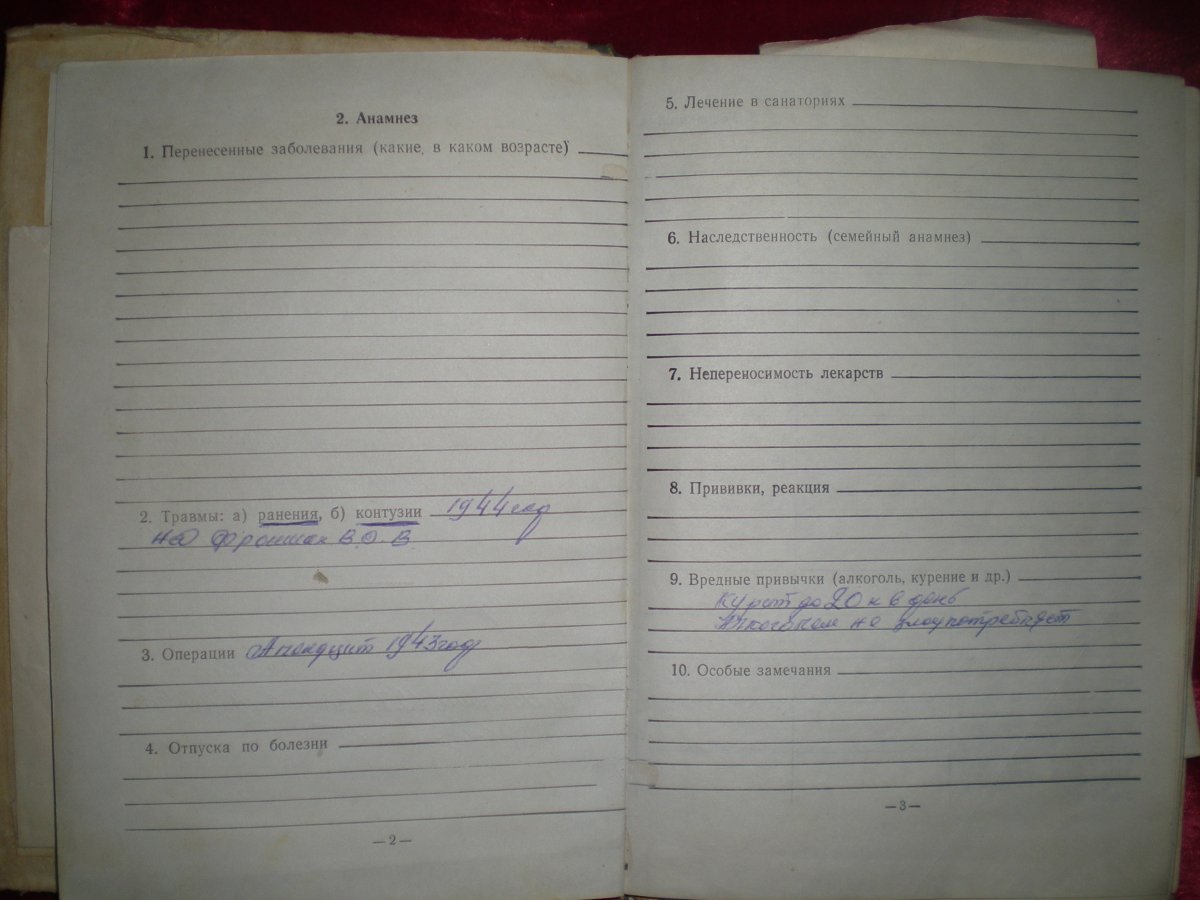 2. Анамнез
1. Перенесенные заболевания (какие, в каком возрасте)
2. Травмы: а) ранения, б) контузии 1944 год
на фронтах В.О.В.
3. Операции Апендицит 1943 год
4. Отпуска по болезни
—2—
5. Лечение в санаториях
6. Наследственность (семейный анамнез)
7. Непереносимость лекарств
8. Прививки, реакция
9. Вредные привычки (алкоголь, курение и др.)
Курит до 20 к в день
Алкоголем не злоупотребляет
10. Особые замечания
—3—